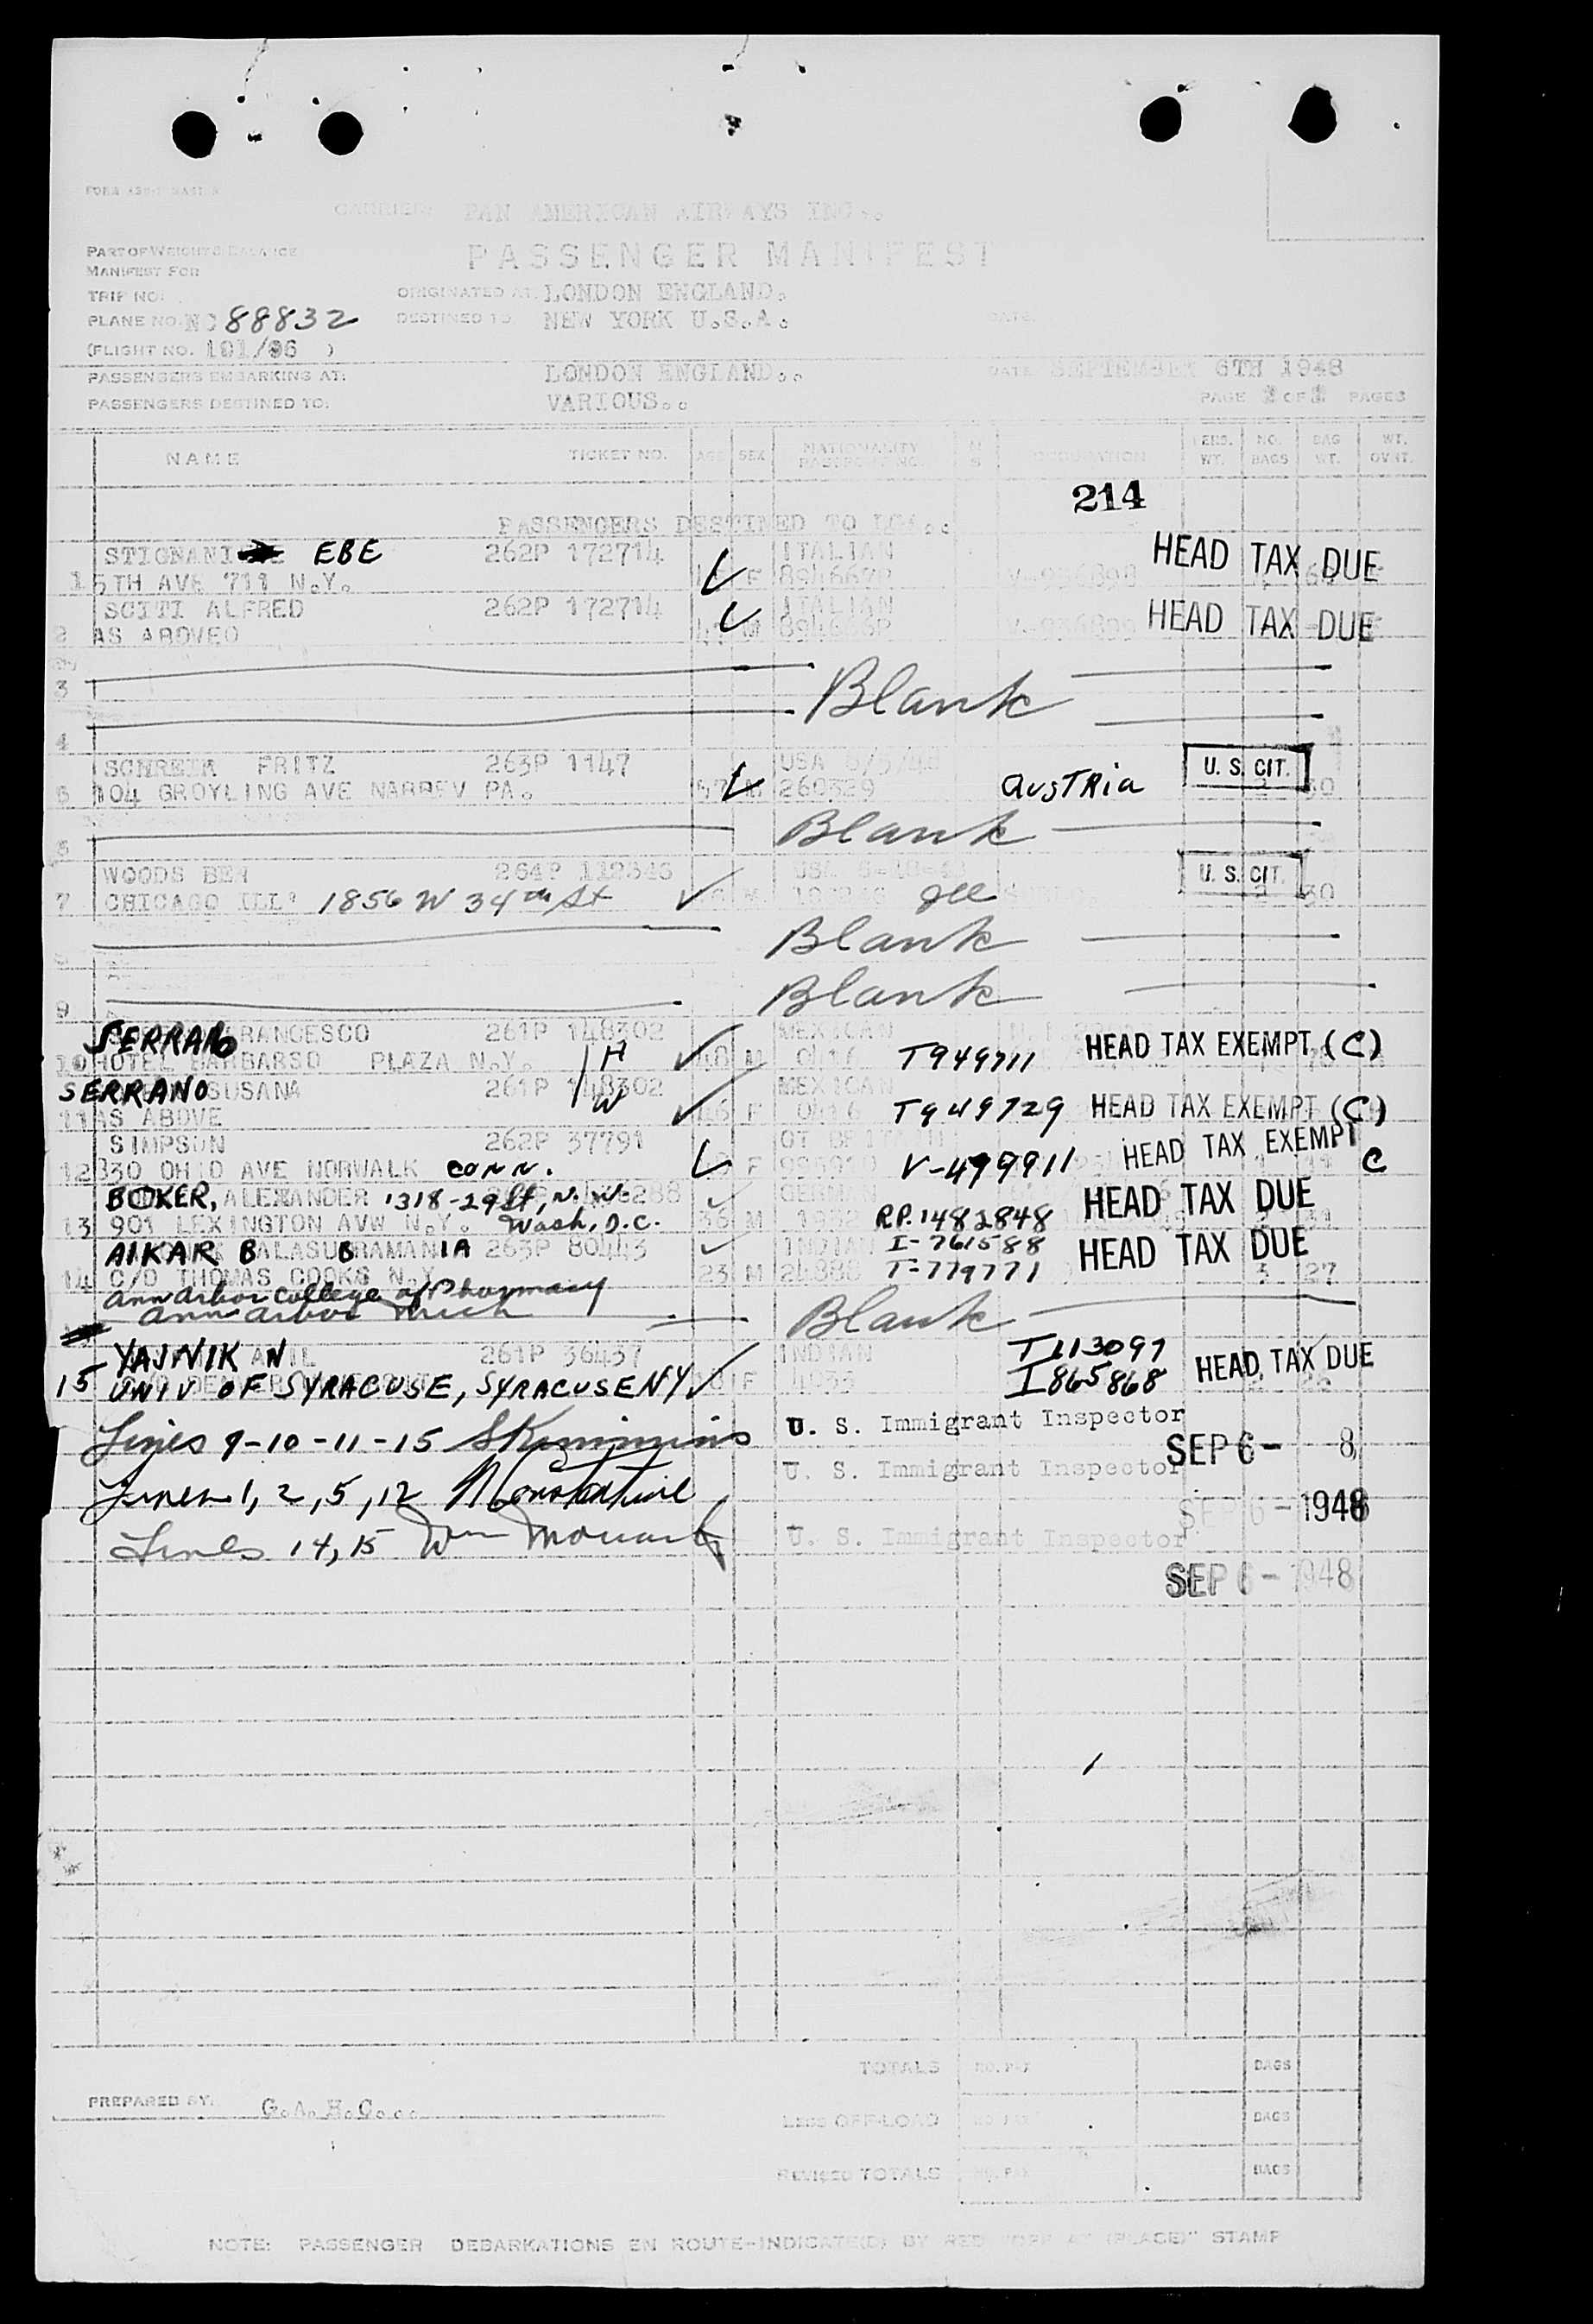 CARRIER PAN AMERICAN AIRWAYS INC..
PASSENGER MANIFEST
PART OF WEIGHT & BALANCE
MANIFEST FOR
TRIP NO.
ORIGINATED AT. LONDON ENGLAND.
PLANE NO. NC 88832 DESTINED TO. NEW YORK U.S.A. DATE.
(FLIGHT NO. 101/06 )
PASSENGERS EMBARKING AT: LONDON ENGLAND.. DATE SEPTEMBER 6TH 1948
PASSENGERS DESTINED TO. VARIOUS.. PAGE 1 OF 1 PAGES
NAME TICKET NO. AGE SEX NATIONALITY PASSPORT NO. OCCUPATION WT. NO. BAGS BAG WT. WT. OVRT.
214
PASSENGERS DESTINED TO LGA..
STIGNANI EBE 262P 172714 ITALIAN HEAD TAX DUE
1 5TH AVE 711 N.Y. F 894667P V-936898
SCITI ALFRED 262P 172714 ITALIAN HEAD TAX DUE
2 AS ABOVEO M 894666P V-936899
3 Blank
4
SCHREIM FRITZ 263P 1147 USA U.S. CIT.
5 104 GROYLING AVE NARREV PA. 57 M 260329 AUSTRIA 30
Blank
WOODS BEN 264P 112346 USA U.S. CIT.
7 CHICAGO ILL. 1856 W 34th St M 30
Blank
9 Blank
SERRANO FRANCESCO 261P 148302 MEXICAN
10 HOTEL BARBARSO PLAZA N.Y. H 48 M 0416 T949711 HEAD TAX EXEMPT (C)
SERRANO SUSANA 261P 148302 MEXICAN
11 AS ABOVE W 46 F 0416 T949729 HEAD TAX EXEMPT (C)
SIMPSON 262P 37791
12 330 OHIO AVE NORWALK CONN. F V-499911 HEAD TAX EXEMPT C
BOKER, ALEXANDER 1318-29 St, N.W. HEAD TAX DUE
13 901 LEXINGTON AVW N.Y. Wash, D.C. 36 M R.P. 1482848
AIKAR B BALASUBRAMANIA 263P 80443 INDIAN I-761588 HEAD TAX DUE
14 C/O THOMAS COOKS N.Y. 23 M 24888 T-779771 3 27
Ann Arbor College of Pharmacy
Ann Arbor Mich Blank
YAJNIK ANIL 261P 36437 INDIAN T113097
15 UNIV OF SYRACUSE, SYRACUSE NY F 4033 I865868 HEAD TAX DUE
Lines 9-10-11-15 U. S. Immigrant Inspector SEP 6- 8
Lines 1, 2, 5, 12 U. S. Immigrant Inspector SEP 6-1948
Lines 14, 15 U. S. Immigrant Inspector
SEP 6-1948
TOTALS NO. PAX BAGS
PREPARED BY. G.A.H.C...
LESS OFF-LOAD NO. PAX BAGS
REVISED TOTALS NO. PAX BAGS
NOTE: PASSENGER DEBARKATIONS EN ROUTE-INDICATE(D) BY RED "OFF AT (PLACE)" STAMP